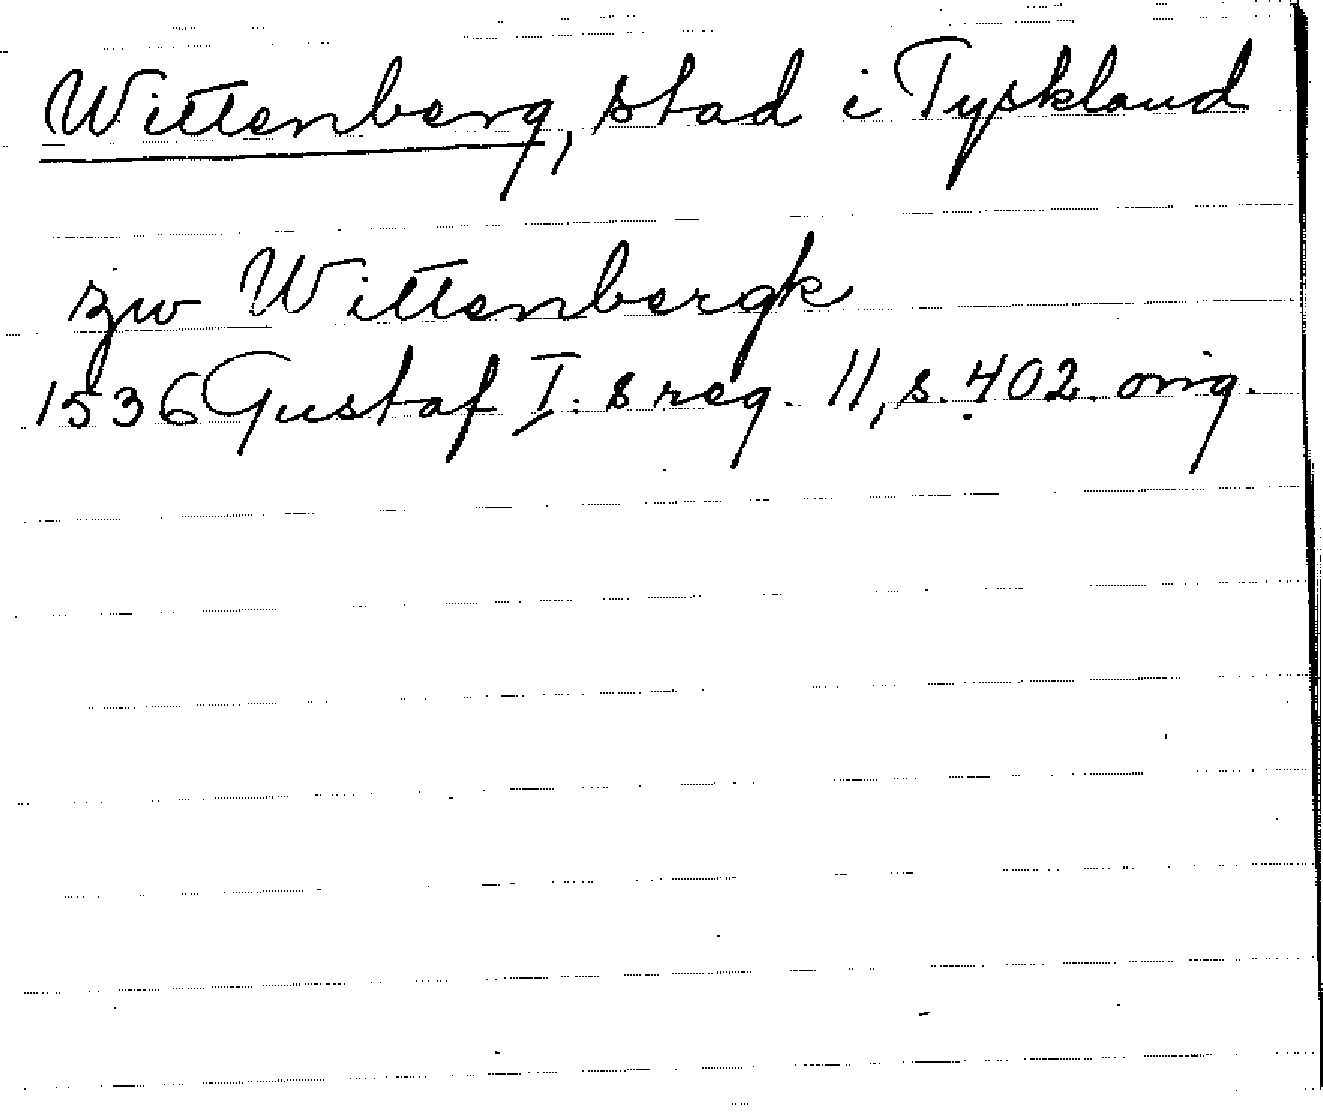 Wittenberg, stad i Tyskland
zw Wittenbergk
1536 Gustaf I:s reg. 11, s. 402. orig.